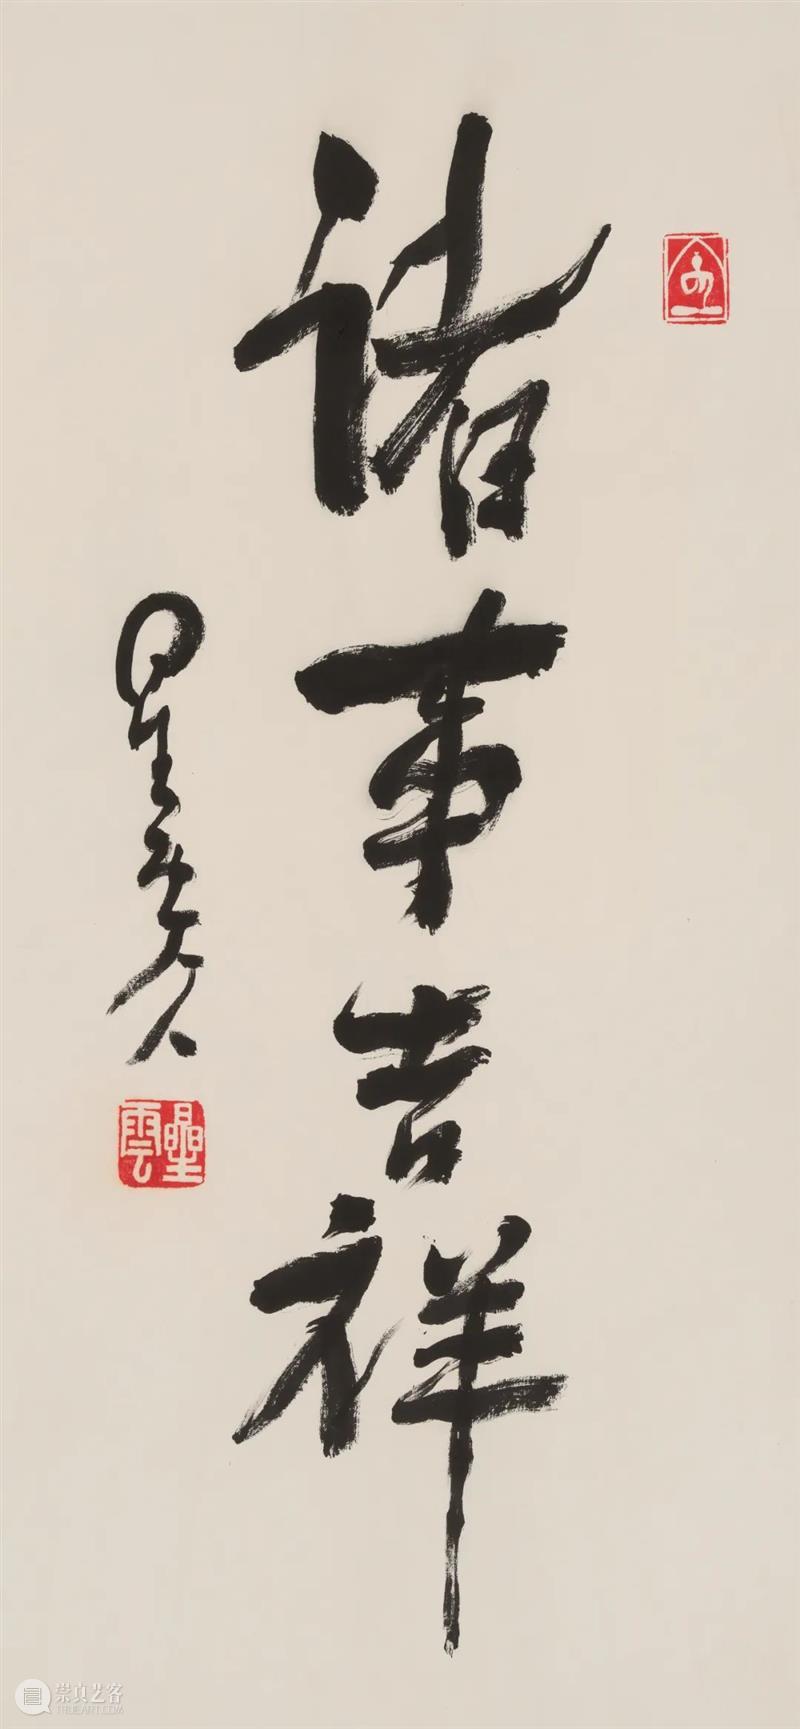 諸事吉祥
星雲
星雲
崇真艺客
TRUEART.COM